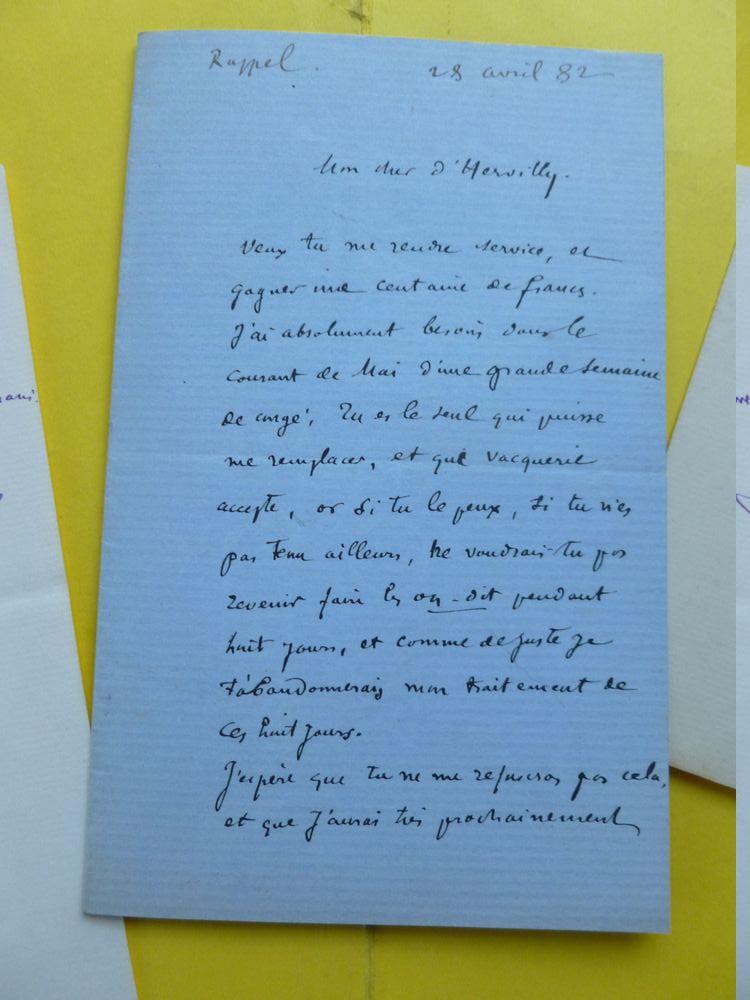 Rappel. 28 avril 82
Mon cher d'Hervilly.
Veux tu me rendre service, et
gagner une centaine de francs.
J'ai absolument besoin dans le
courant de Mai d'une grande semaine
de congé, Tu es le seul qui puisse
me remplacer, et que Vacquerie
accepte, or si tu le peux, si tu n'es
pas tenu ailleurs, ne voudrais-tu pas
revenir faire les on-dit pendant
huit jours, et comme de juste je
t'abandonnerais mon traitement de
ces huit jours.
J'espère que tu ne me refuseras pas cela,
et que j'aurai très prochainement